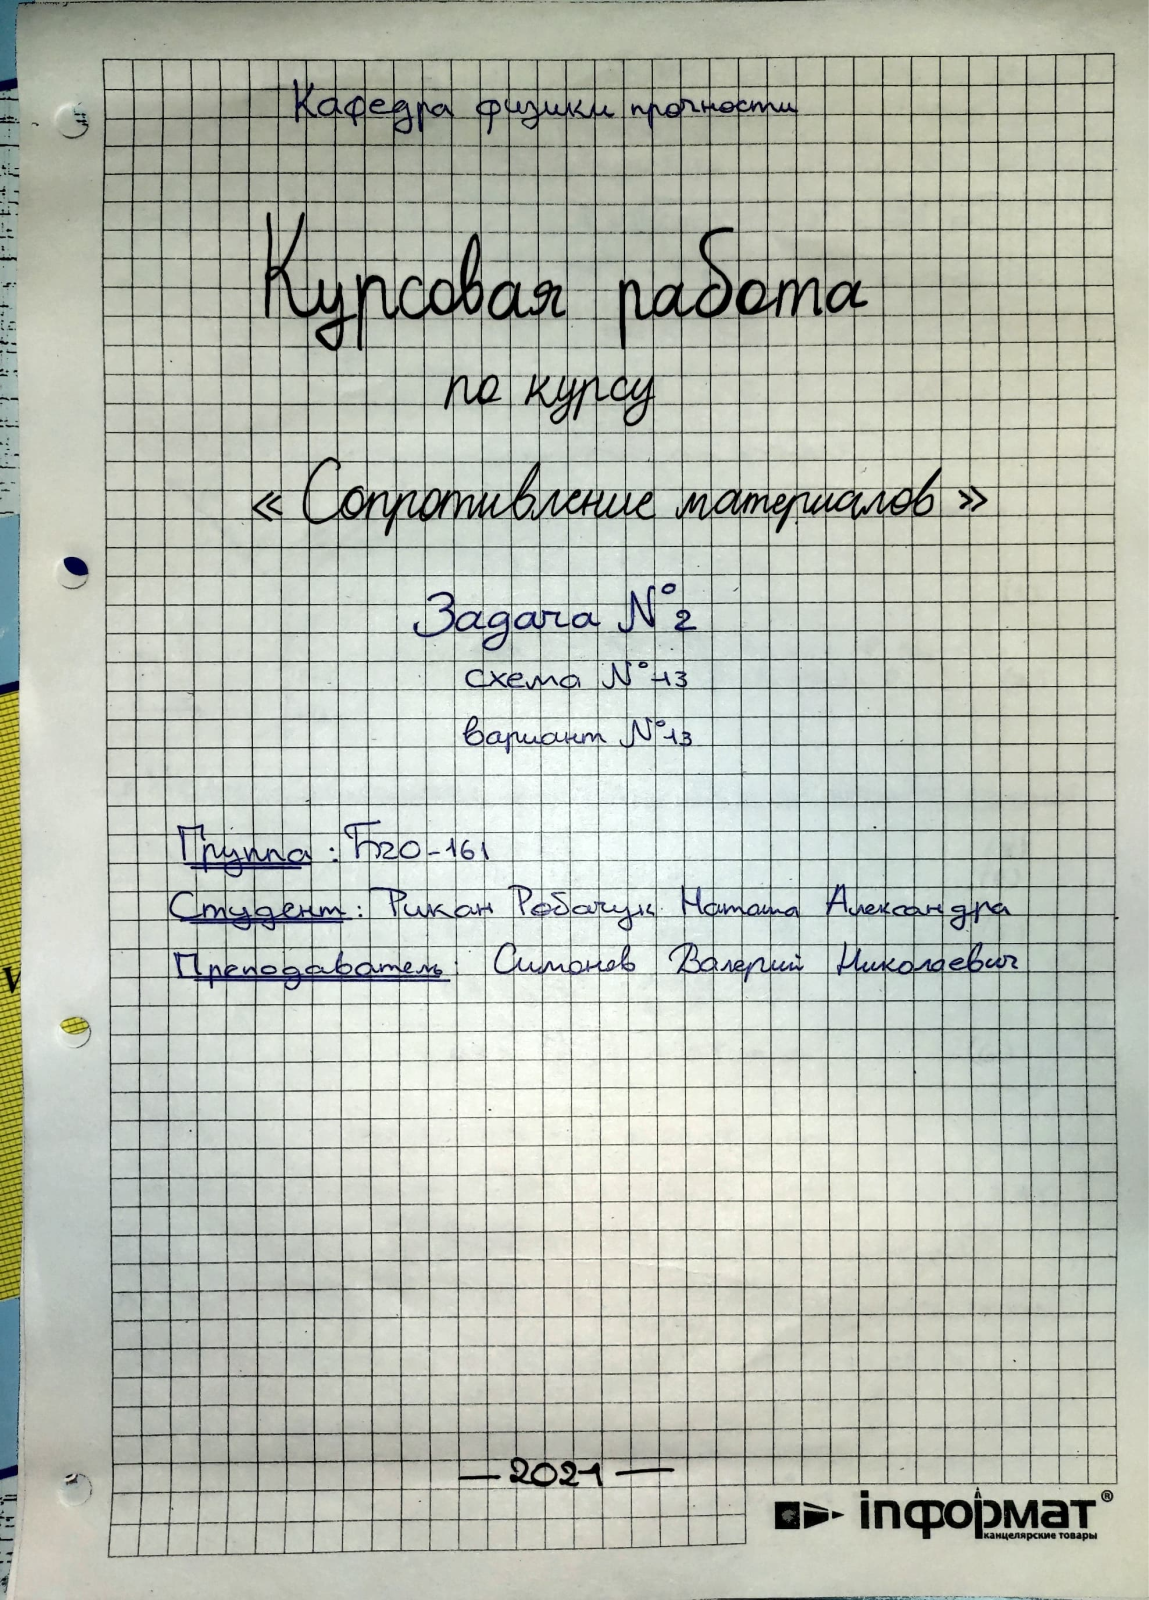 Кафедра физики прочности
Курсовая работа
по курсу
« Сопротивление материалов »
Задача №2
схема №13
вариант №13
Группа: Б20-161
Студент: Рикан Робачук Наташа Александра
Преподаватель: Симонов Валерий Николаевич
— 2021 —
inформат®
канцелярские товары